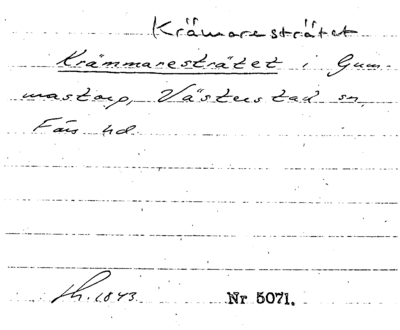 Krämaresträtet
Krämmaresträtet i Gum-
mastorp, Västerstad sn,
Färs hd.
1843 Nr 5071.